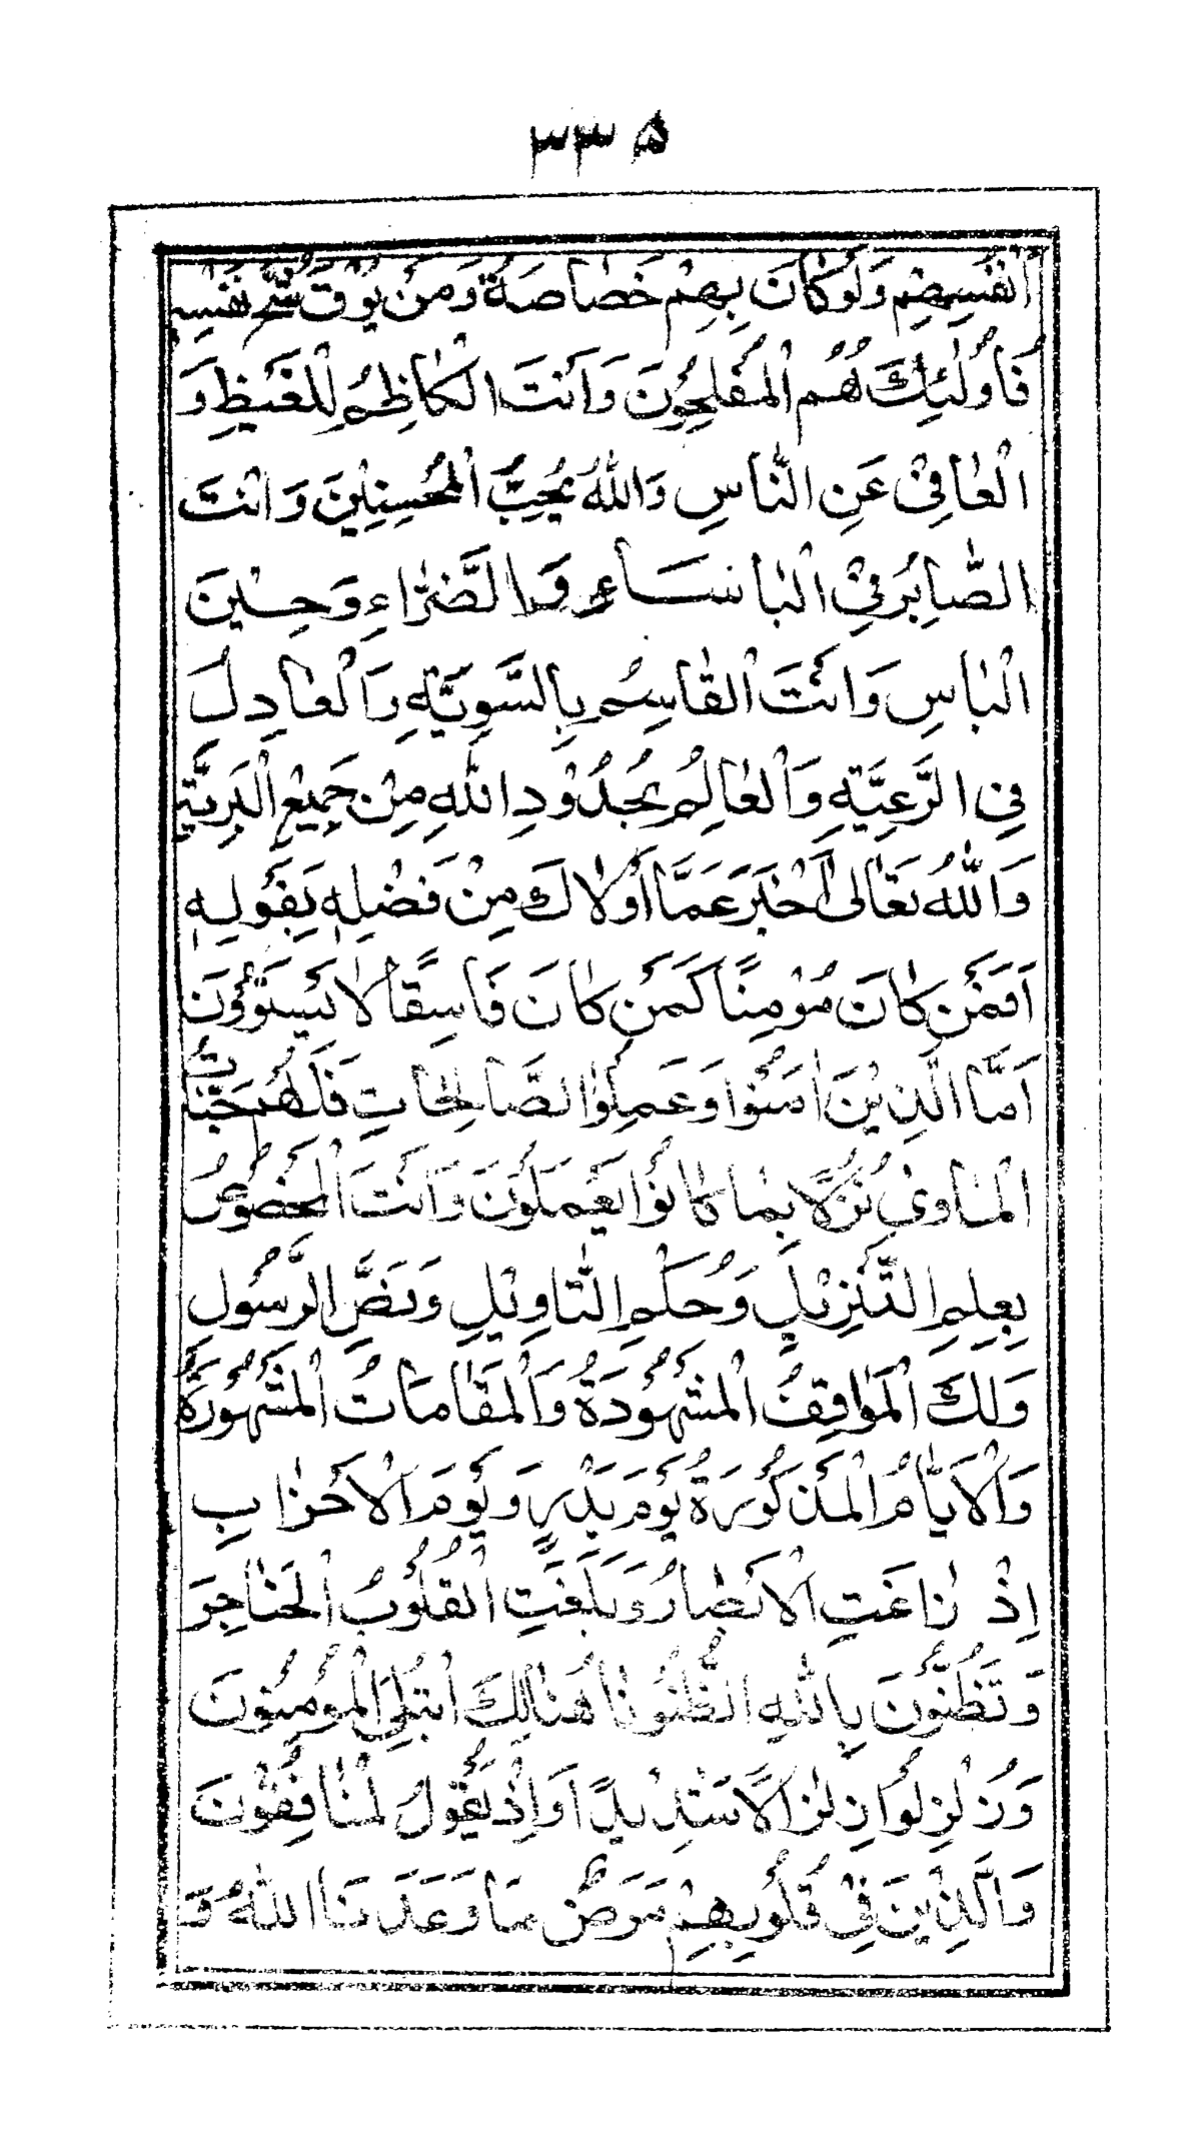 ۳۳۵
اَنْفُسِهِمْ وَلَوْ كَانَ بِهِمْ خَصَاصَةٌ وَمَنْ يُوقَ شُحَّ نَفْسِهِ
فَاُولٰئِكَ هُمُ الْمُفْلِحُونَ وَاَنْتَ الْكَاظِمُ لِلْغَيْظِ وَ
الْعَافِيْ عَنِ النَّاسِ وَاللّٰهُ يُحِبُّ الْمُحْسِنِيْنَ وَاَنْتَ
الصَّابِرُ فِي الْبَاْسَاءِ وَالضَّرَّاءِ وَحِيْنَ
الْبَاْسِ وَاَنْتَ الْقَاسِمُ بِالسَّوِيَّةِ وَالْعَادِلُ
فِي الرَّعِيَّةِ وَالْعَالِمُ بِحُدُوْدِ اللّٰهِ مِنْ جَمِيْعِ الْبَرِيَّةِ
وَاللّٰهُ تَعَالٰى اَخْبَرَ عَمَّا اَوْلَاكَ مِنْ فَضْلِهٖ بِقَوْلِهٖ
اَفَمَنْ كَانَ مُؤْمِنًا كَمَنْ كَانَ فَاسِقًا لَا يَسْتَوُوْنَ
اَمَّا الَّذِيْنَ اٰمَنُوْا وَعَمِلُوا الصَّالِحَاتِ فَلَهُمْ جَنَّاتُ
الْمَاْوىٰ نُزُلًا بِمَا كَانُوْا يَعْمَلُوْنَ وَاَنْتَ الْمَخْصُوْصُ
بِعِلْمِ التَّنْزِيْلِ وَحُكْمِ التَّاْوِيْلِ وَنَصِّ الرَّسُوْلِ
وَلَكَ الْمَوَاقِفُ الْمَشْهُوْدَةُ وَالْمَقَامَاتُ الْمَشْهُوْرَةُ
وَالْاَيَّامُ الْمَذْكُوْرَةُ يَوْمَ بَدْرٍ وَيَوْمَ الْاَحْزَابِ
اِذْ زَاغَتِ الْاَبْصَارُ وَبَلَغَتِ الْقُلُوْبُ الْحَنَاجِرَ
وَتَظُنُّوْنَ بِاللّٰهِ الظُّنُوْنَا هُنَالِكَ ابْتُلِيَ الْمُؤْمِنُوْنَ
وَزُلْزِلُوْا زِلْزَالًا شَدِيْدًا وَاِذْ يَقُوْلُ لْمُنَافِقُوْنَ
وَالَّذِيْنَ فِيْ قُلُوْبِهِمْ مَرَضٌ مَا وَعَدَنَا اللّٰهُ وَ